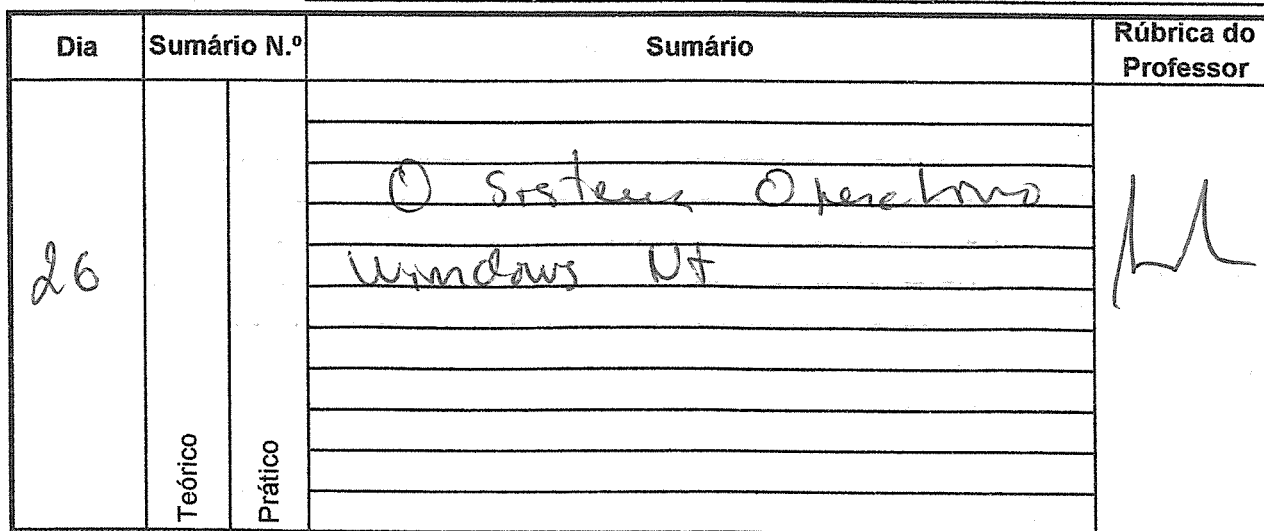 Dia Sumário N.º Sumário Rúbrica do Professor
26
Teórico
Prático
O Sistema Operativo
Windows Nt